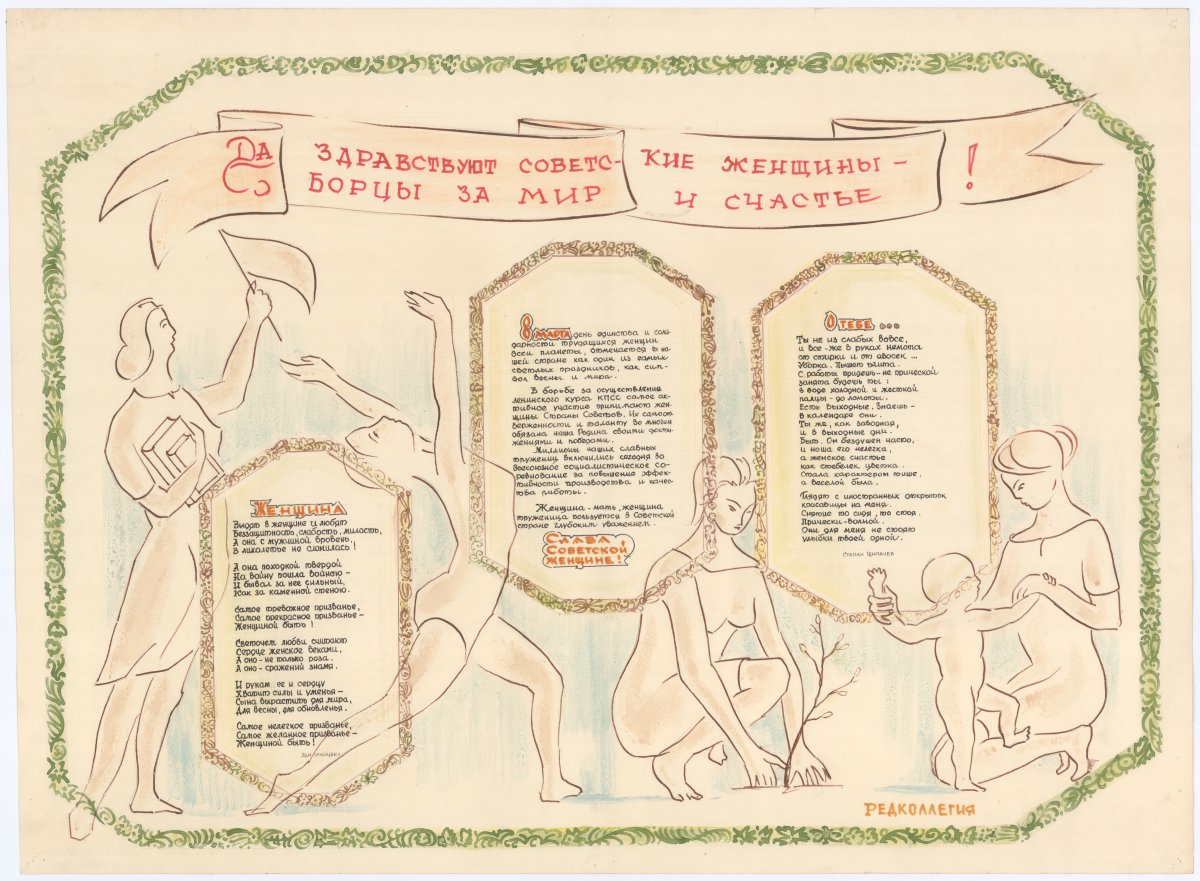 ДА ЗДРАВСТВУЮТ СОВЕТС- КИЕ ЖЕНЩИНЫ –
БОРЦЫ ЗА МИР И СЧАСТЬЕ !
ЖЕНЩИНА
Видят в женщине и любят
Беззащитность, слабость, милость,
А она с мужчиной вровень,
В лихолетье не сломилась!
А она походкой твердой
На войну пошла войною –
И бывал за нее сильный,
Как за каменной стеною.
Самое тревожное призванье,
Самое прекрасное призванье –
Женщиной быть!
Светочем любви считают
Сердце женское веками,
А оно – не только роза.
А оно – сражений знамя.
И рукам ее и сердцу
Хватит силы и уменья –
Сына вырастить для мира,
Для весны, для обновленья.
Самое нелегкое призванье,
Самое желанное призванье –
Женщиной быть!
8 МАРТА день единства и соли-
дарности трудящихся женщин
всей планеты, отмечается в на-
шей стране как один из самых
светлых праздников, как сим-
вол весны и мира.
В борьбе за осуществление
ленинского курса КПСС самое ак-
тивное участие принимают жен-
щины Страны Советов. Их самоот
верженности и таланту во многом
обязана наша Родина своими дости-
жениями и победами.
Миллионы наших славных
тружениц включились сегодня во
Всесоюзное социалистическое со-
ревнование за повышение эффек-
тивности производства и качес-
тва работы.
Женщина – мать, женщина
труженица пользуется в Советской
стране глубоким уважением.
СЛАВА
СОВЕТСКОЙ
ЖЕНЩИНЕ!
О ТЕБЕ ...
Ты не из слабых вовсе,
и все-же в руках немота
от стирки и от авосек ...
Уборка. Пышет плита.
С работы придешь – не прической
занята будешь ты:
в воде холодной и жесткой
пальцы – до ломоты.
Есть выходные. Знаешь –
в календаре они.
Ты же, как заводная,
и в выходные дни.
Быт. Он бездушен часто,
и ноша его нелегка,
а женское счастье
как стебелек цветка.
Стала характером тише,
а веселой была.
Глядят с иностранных открыток
красавицы на меня.
Снятые то сидя, то стоя.
Прически – волной.
Они для меня не стоят
улыбки твоей одной.
Степан Щипачев
РЕДКОЛЛЕГИЯ